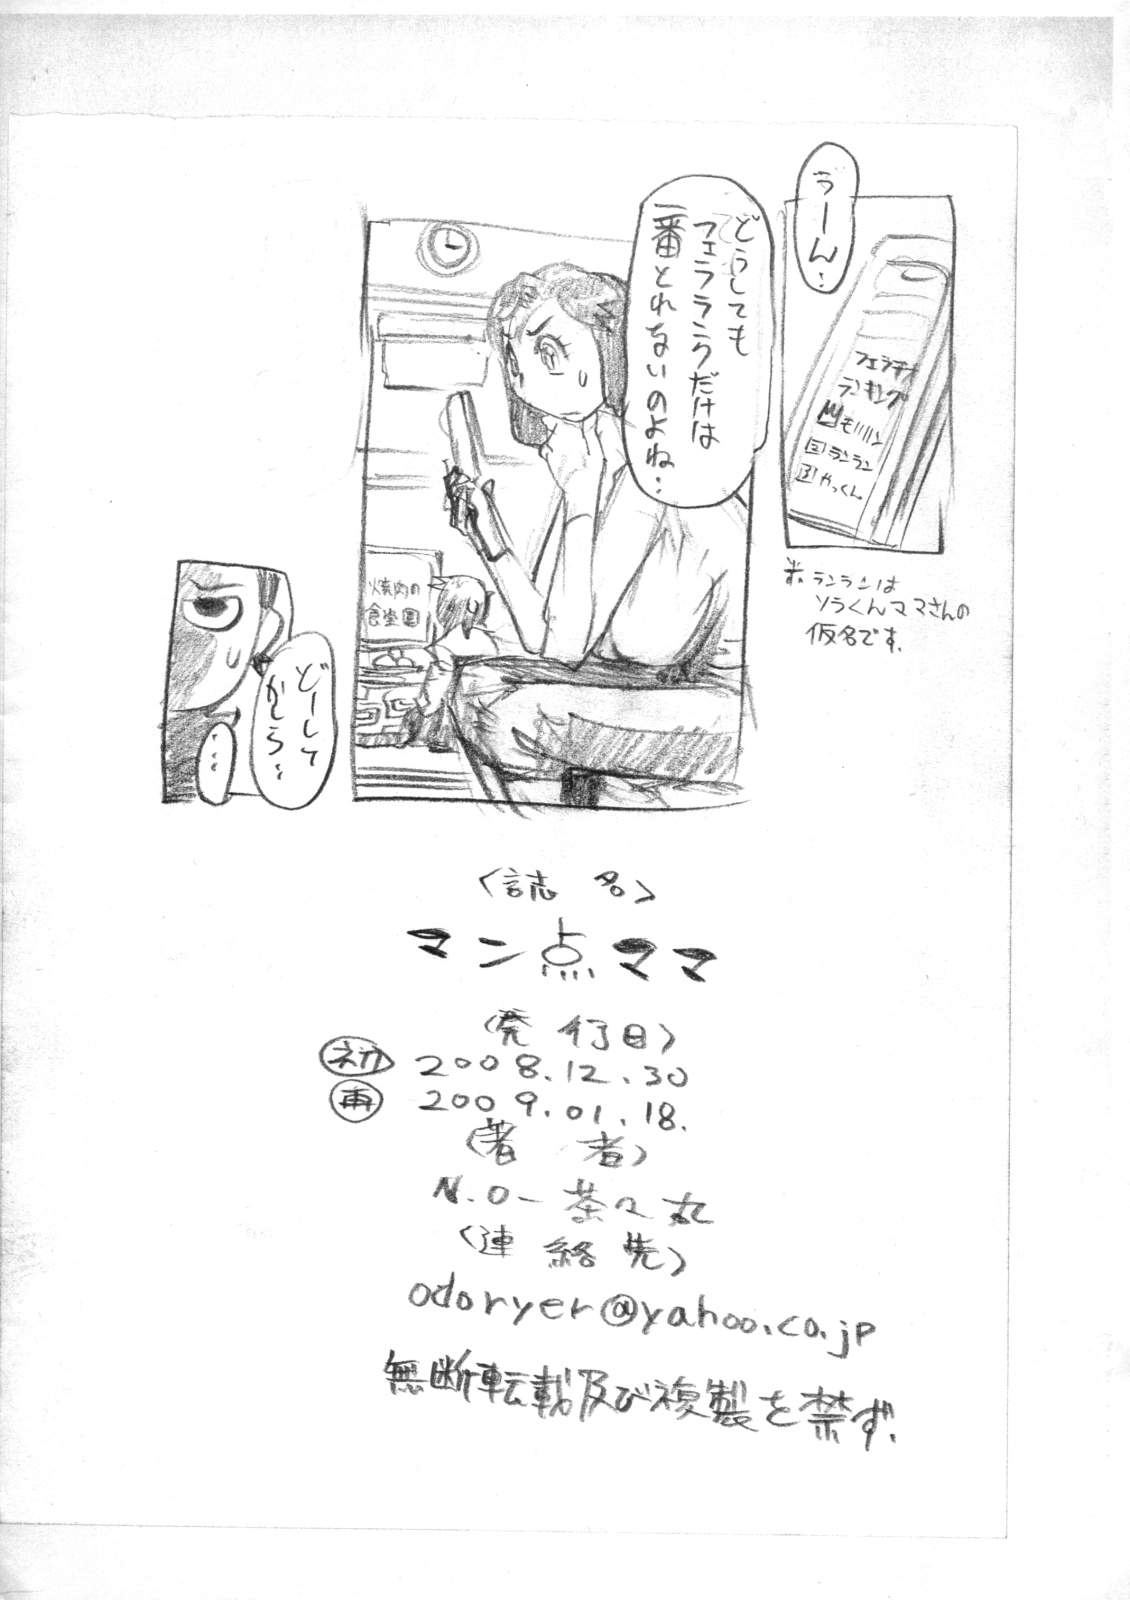 うーん…
フェラチオ
ランキング
モリリン
2 ランラン
3 やっくん
※ランランは
ソラくんママさんの
仮名です.
どうしても
フェラランクだけは
一番とれないのよね…
焼肉の
食堂園
どーして
かしら…
…
<誌 名>
マン点ママ
<発行日>
初 2008.12.30
再 2009.01.18.
<著 者>
N.O-茶々丸
<連絡先>
odoryer@yahoo.co.jp
無断転載及び複製を禁ず.